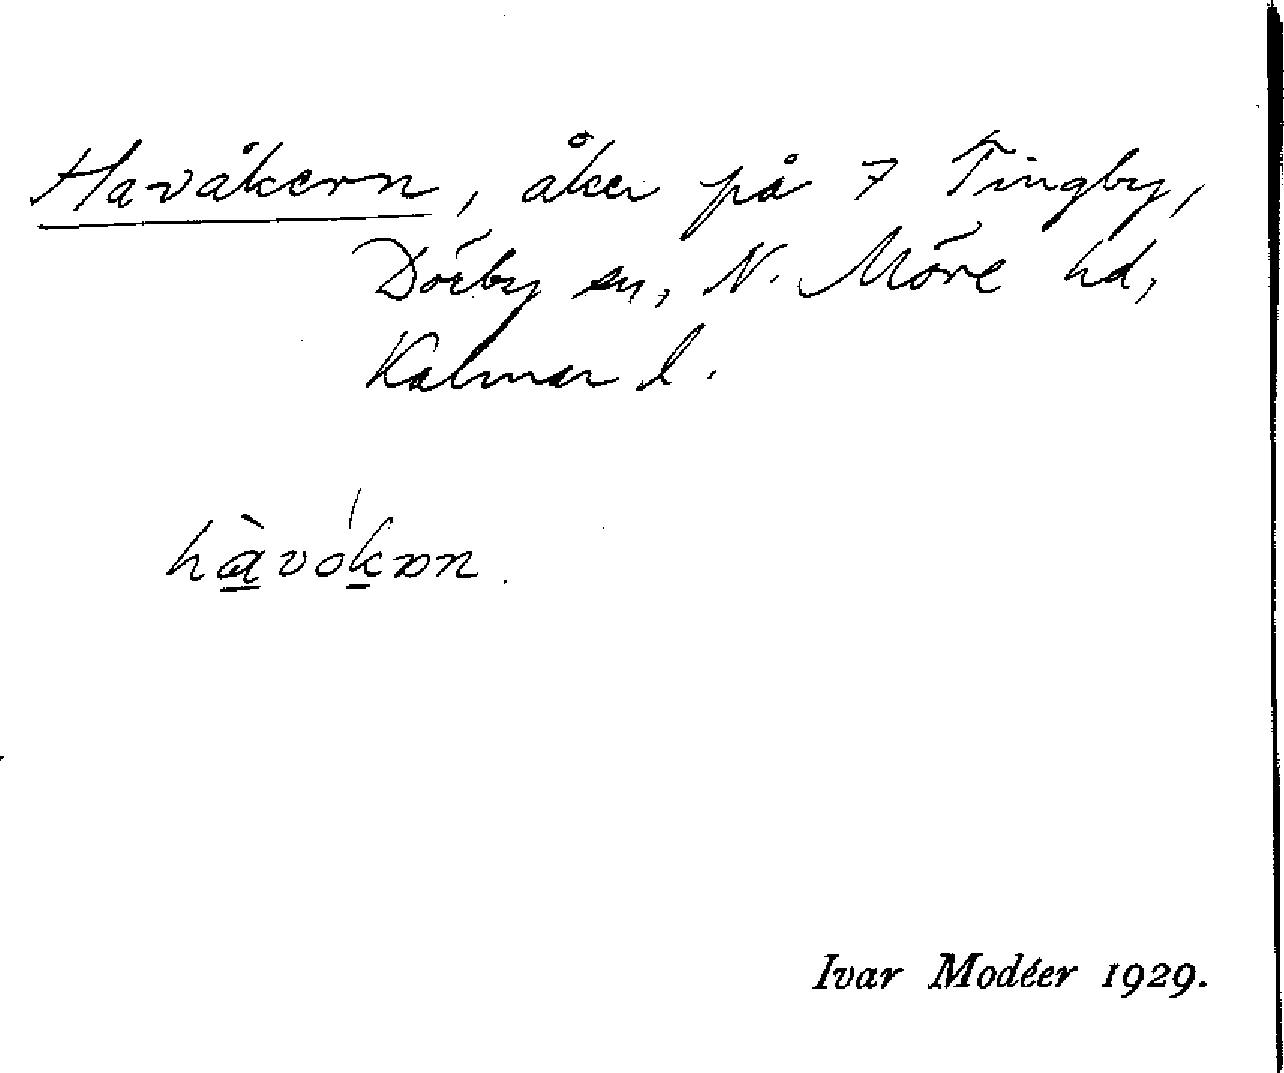 Havåkern, åker på 7 Tingby,
Dörby sn, N. Möre hd,
Kalmar l.
hàvókən.
Ivar Modéer 1929.